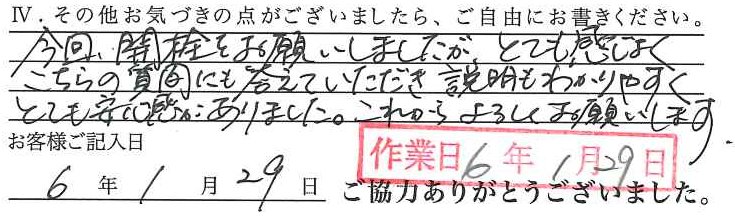 Ⅳ．その他お気づきの点がございましたら、ご自由にお書きください。
今回、開栓をお願いしましたが、とても感じよく
こちらの質問にも答えていただき説明もわかりやすく
とても安心感がありました。これからよろしくお願いします。
お客様ご記入日
作業日 6年 1月 29日
6年 1月 29日 ご協力ありがとうございました。